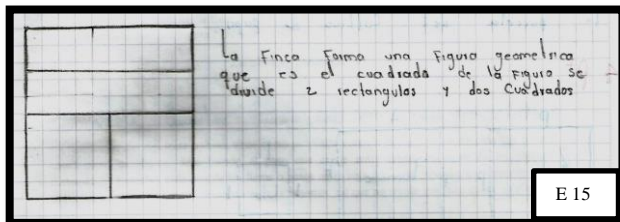 La Finca Forma una Figura geometrica
que es el cuadrado de la Figura se
divide 2 rectangulos y dos Cuadrados
E 15